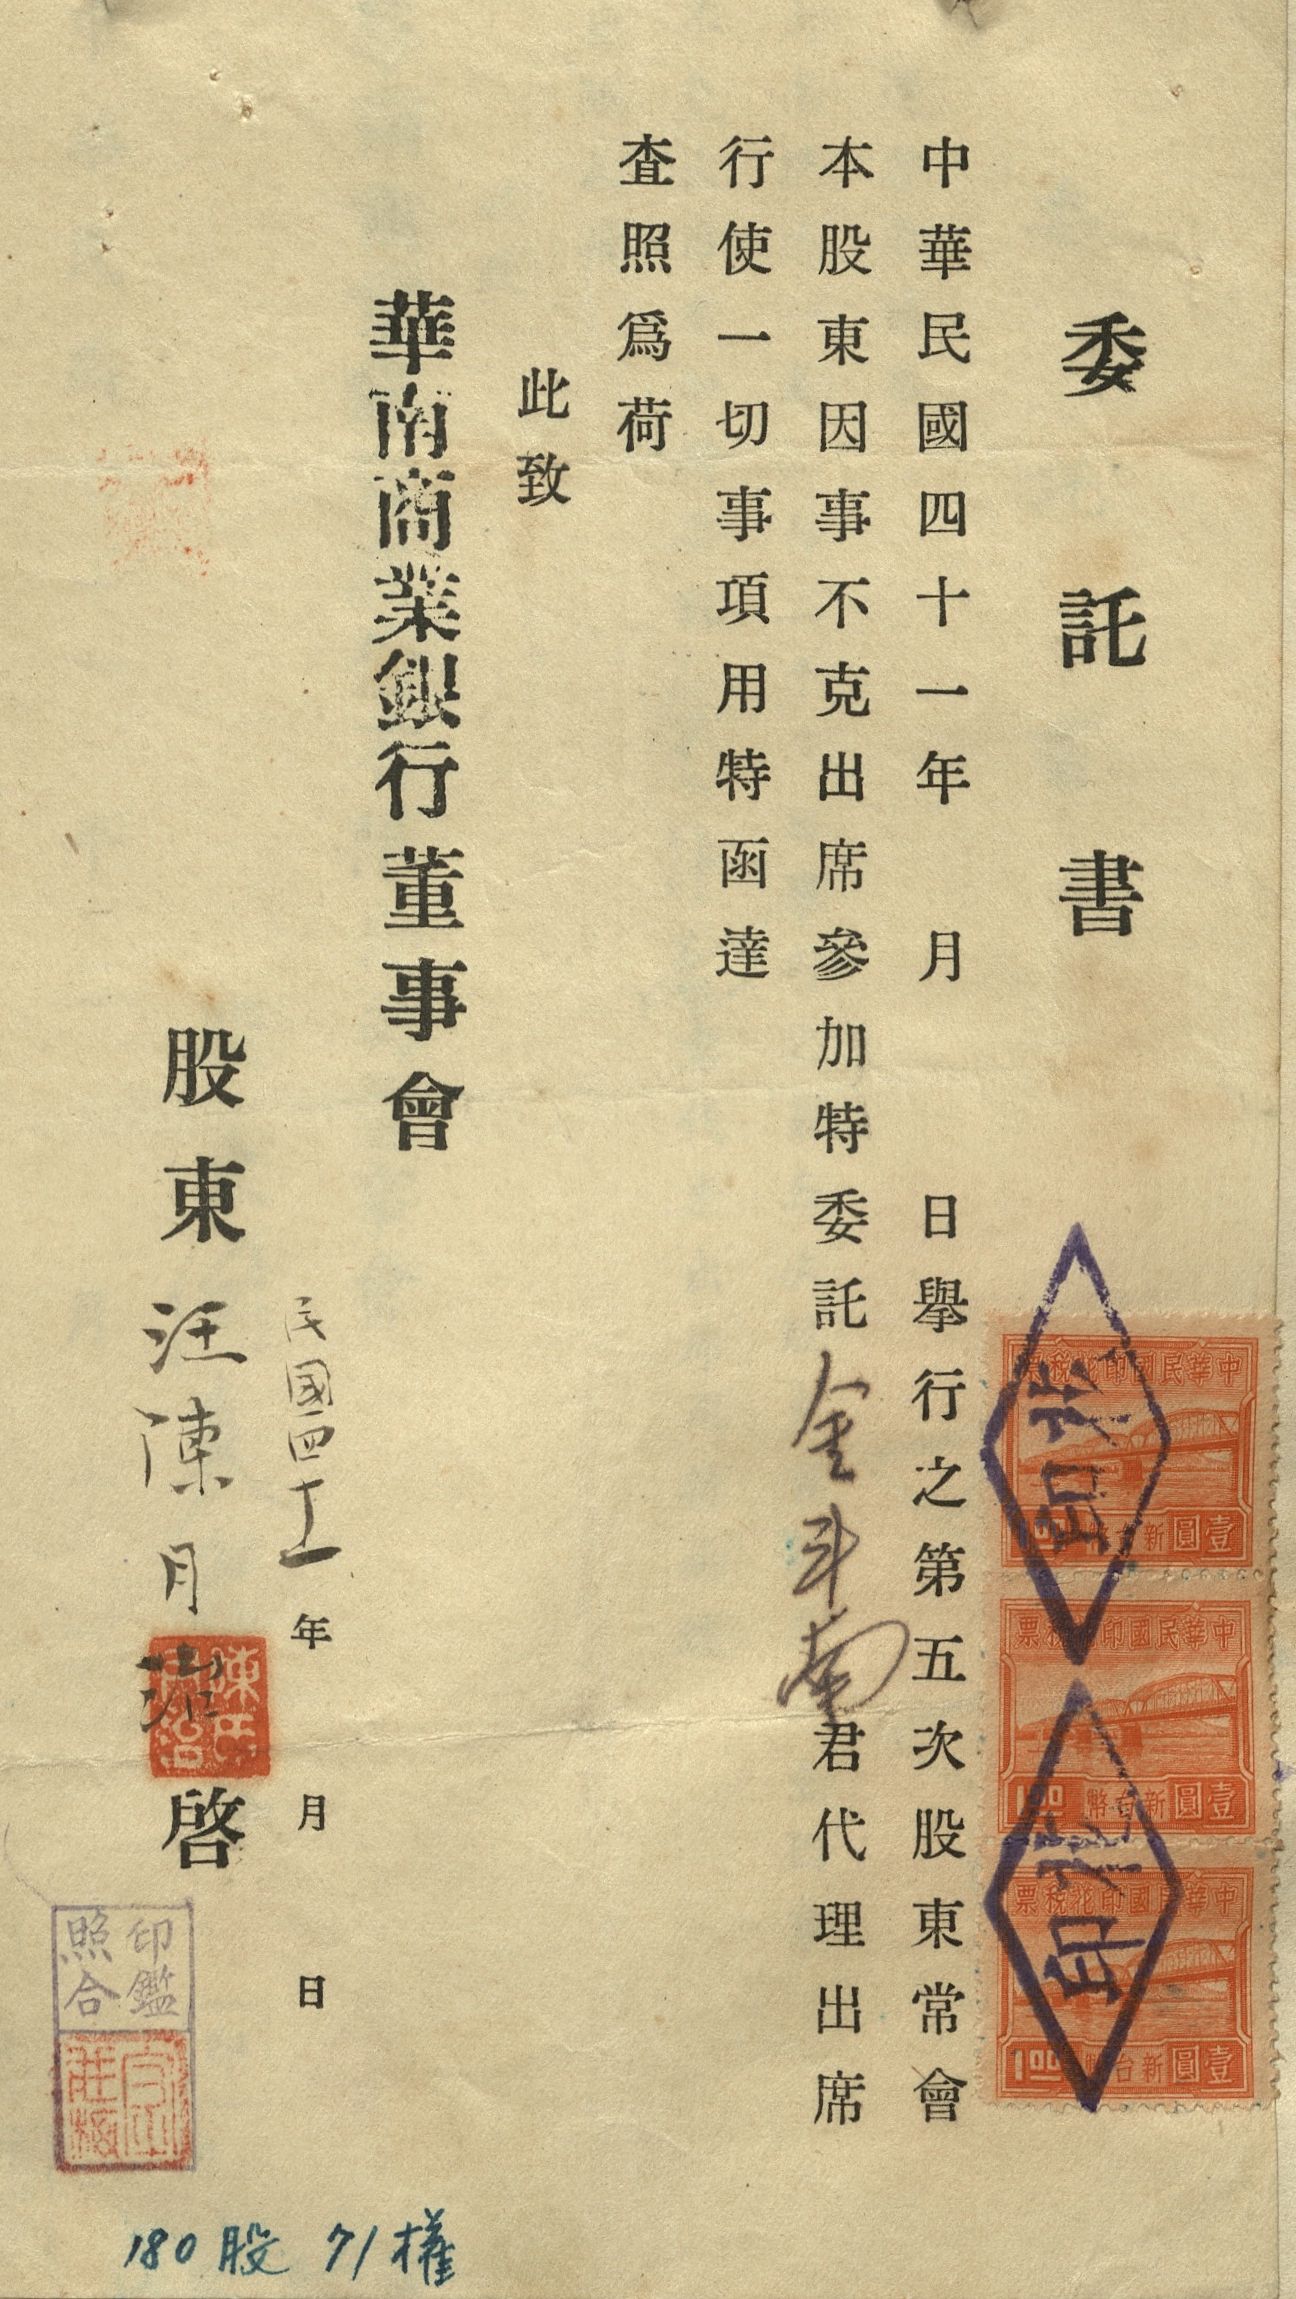 委託書
中華民國四十一年　月　日舉行之第五次股東常會
本股東因事不克出席參加特委託金斗南君代理出席
行使一切事項用特函達
查照爲荷
此致
華南商業銀行董事會
民國四十一年　月　日
股東汪陳月治啓
陳氏月治
中華民國印花稅票
壹圓新台幣1.00
中華民國印花稅票
壹圓新台幣1.00
中華民國印花稅票
壹圓新台幣1.00
印花
印花
印鑑照合
180股 71權